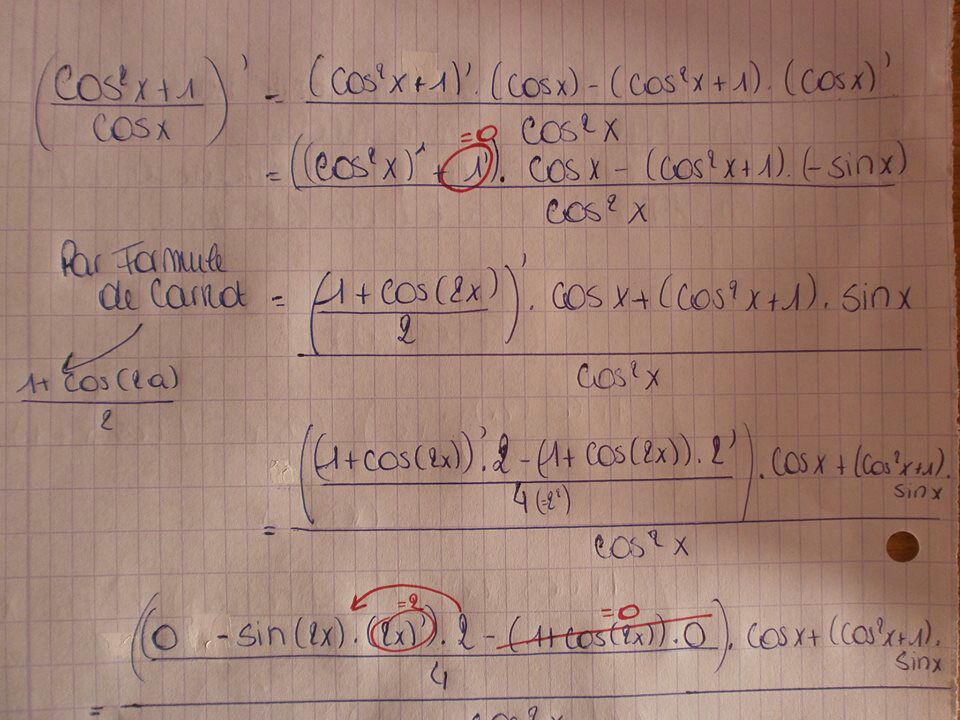 (cos²x+1 / cosx)' = (cos²x+1)'.(cosx)-(cos²x+1).(cosx)' / cos²x
=0
= ((cos²x)' + 1'). cosx - (cos²x+1).(-sinx) / cos²x
Par Formule
de Carnot = (1+cos(2x) / 2)'. cosx+(cos²x+1). sinx / cos²x
1+cos(2a) / 2
= ((1+cos(2x))'.2-(1+cos(2x)).2' / 4 (=2²)). cosx+(cos²x+1). sinx / cos²x
=2 =0
= (0 -sin(2x).(2x)'.2-(1+cos(2x)).0 / 4). cosx+(cos²x+1). sinx / cos²x